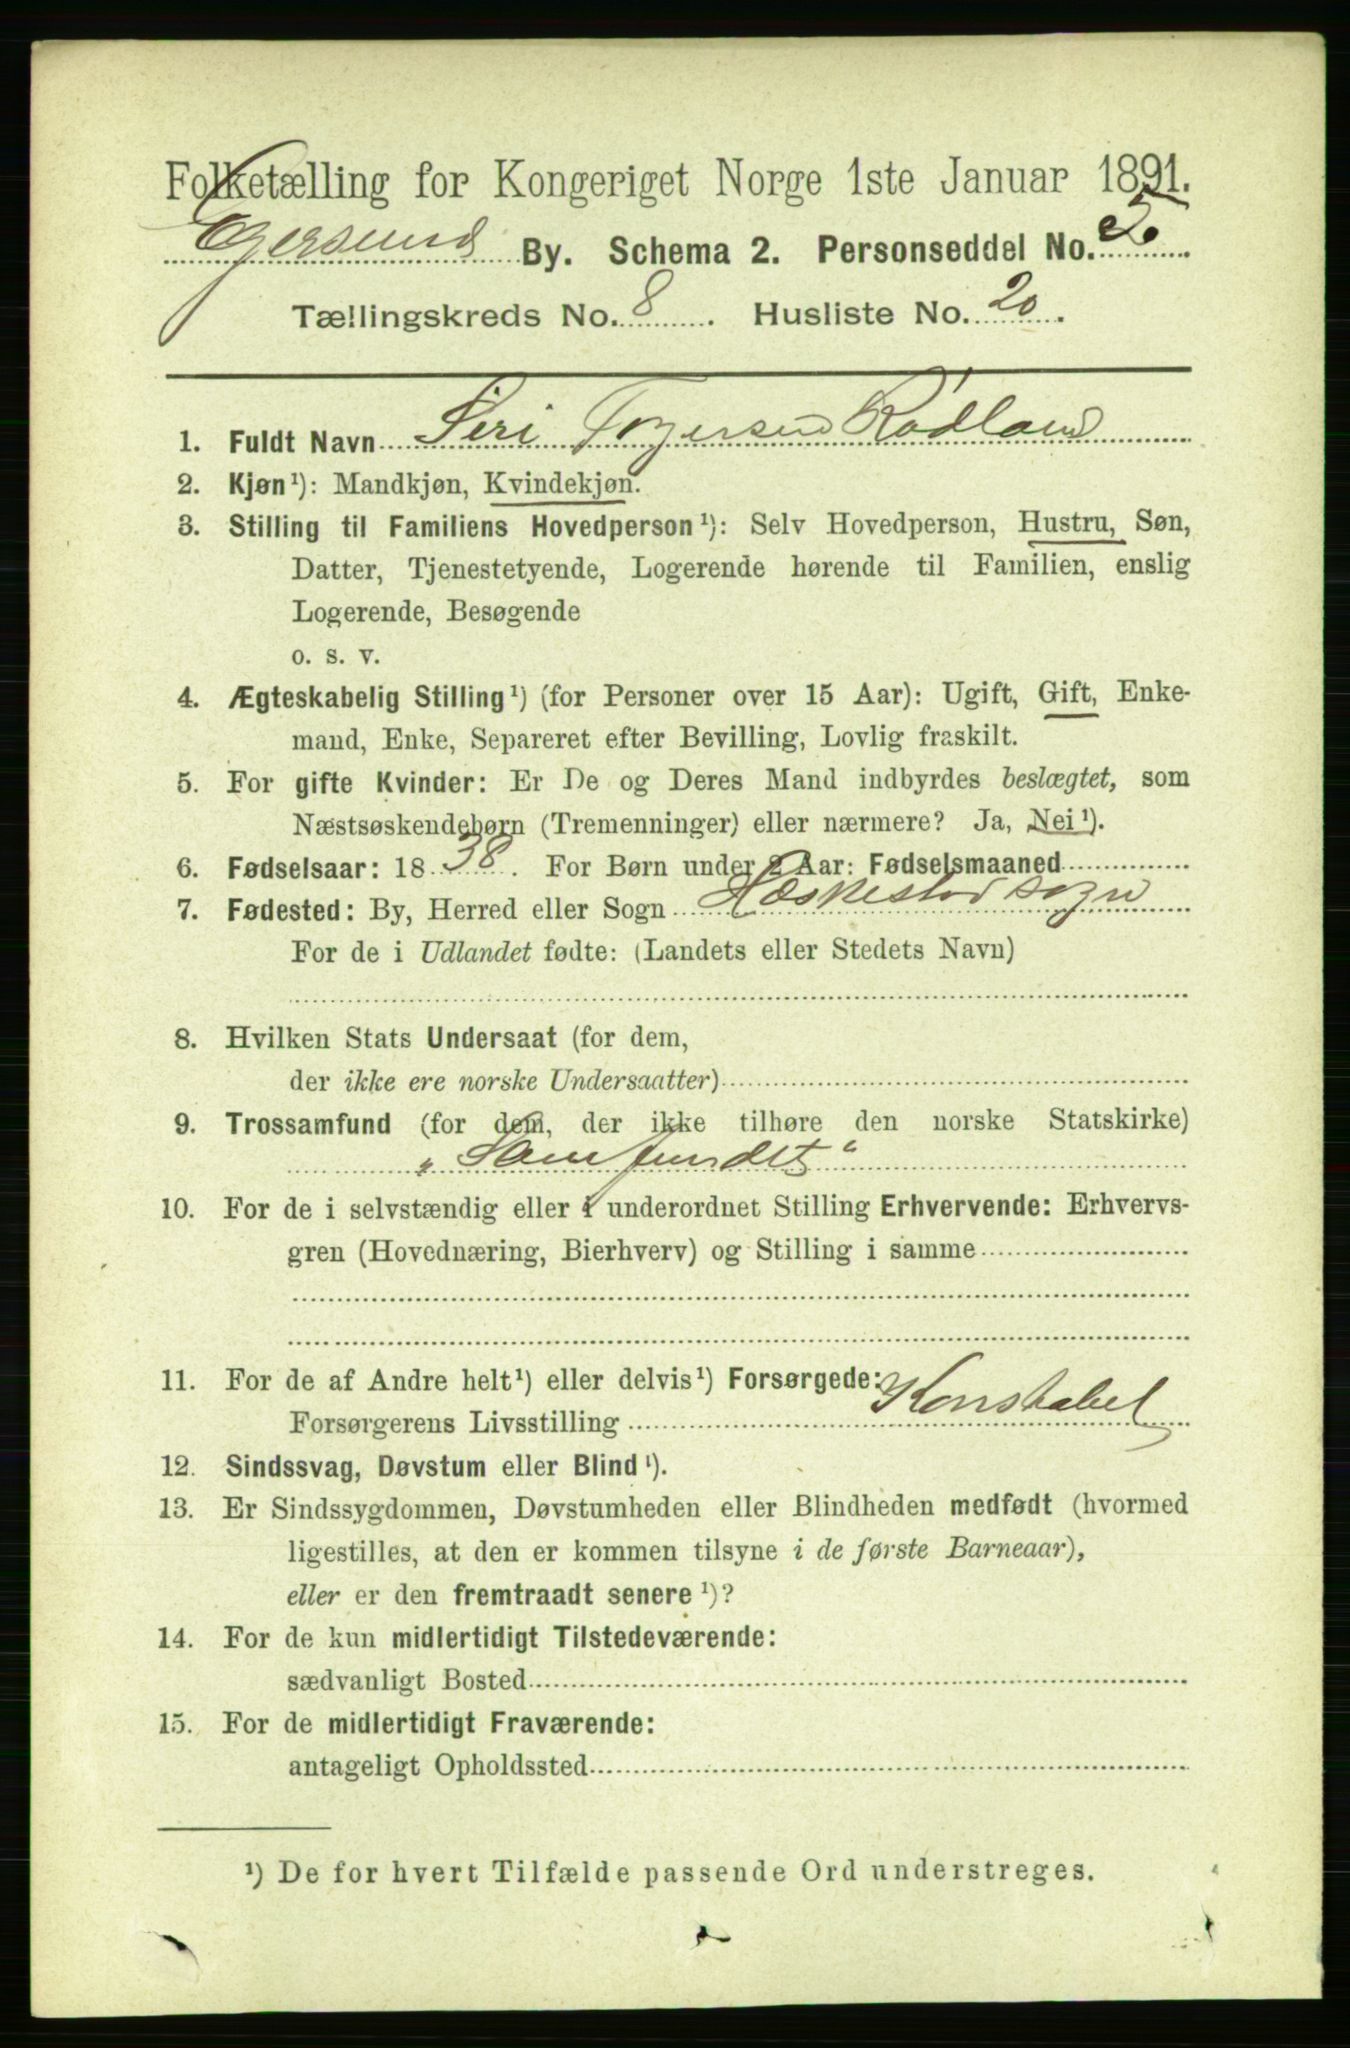 Folketælling for Kongeriget Norge 1ste Januar 1891.
Egersund By. Schema 2. Personseddel No. 5
Tællingskreds No. 8. Husliste No. 20.
1. Fuldt Navn Siri Togersen Rödland
2. Kjøn¹): Mandkjøn, Kvindekjøn.
3. Stilling til Familiens Hovedperson¹): Selv Hovedperson, Hustru, Søn,
Datter, Tjenestetyende, Logerende hørende til Familien, enslig
Logerende, Besøgende
o. s. v.
4. Ægteskabelig Stilling¹) (for Personer over 15 Aar): Ugift, Gift, Enke-
mand, Enke, Separeret efter Bevilling, Lovlig fraskilt.
5. For gifte Kvinder: Er De og Deres Mand indbyrdes beslægtet, som
Næstsøskendebørn (Tremenninger) eller nærmere? Ja, Nei¹).
6. Fødselsaar: 1838. For Børn under 2 Aar: Fødselsmaaned
7. Fødested: By, Herred eller Sogn Hæskestad sogn
For de i Udlandet fødte: (Landets eller Stedets Navn)
8. Hvilken Stats Undersaat (for dem,
der ikke ere norske Undersaatter)
9. Trossamfund (for dem, der ikke tilhøre den norske Statskirke)
„Samfundet“
10. For de i selvstændig eller i underordnet Stilling Erhvervende: Erhvervs-
gren (Hovednæring, Bierhverv) og Stilling i samme
11. For de af Andre helt¹) eller delvis¹) Forsørgede:
Forsørgerens Livsstilling Konstabel
12. Sindssvag, Døvstum eller Blind¹).
13. Er Sindssygdommen, Døvstumheden eller Blindheden medfødt (hvormed
ligestilles, at den er kommen tilsyne i de første Barneaar),
eller er den fremtraadt senere¹)?
14. For de kun midlertidigt Tilstedeværende:
sædvanligt Bosted
15. For de midlertidigt Fraværende:
antageligt Opholdssted
¹) De for hvert Tilfælde passende Ord understreges.